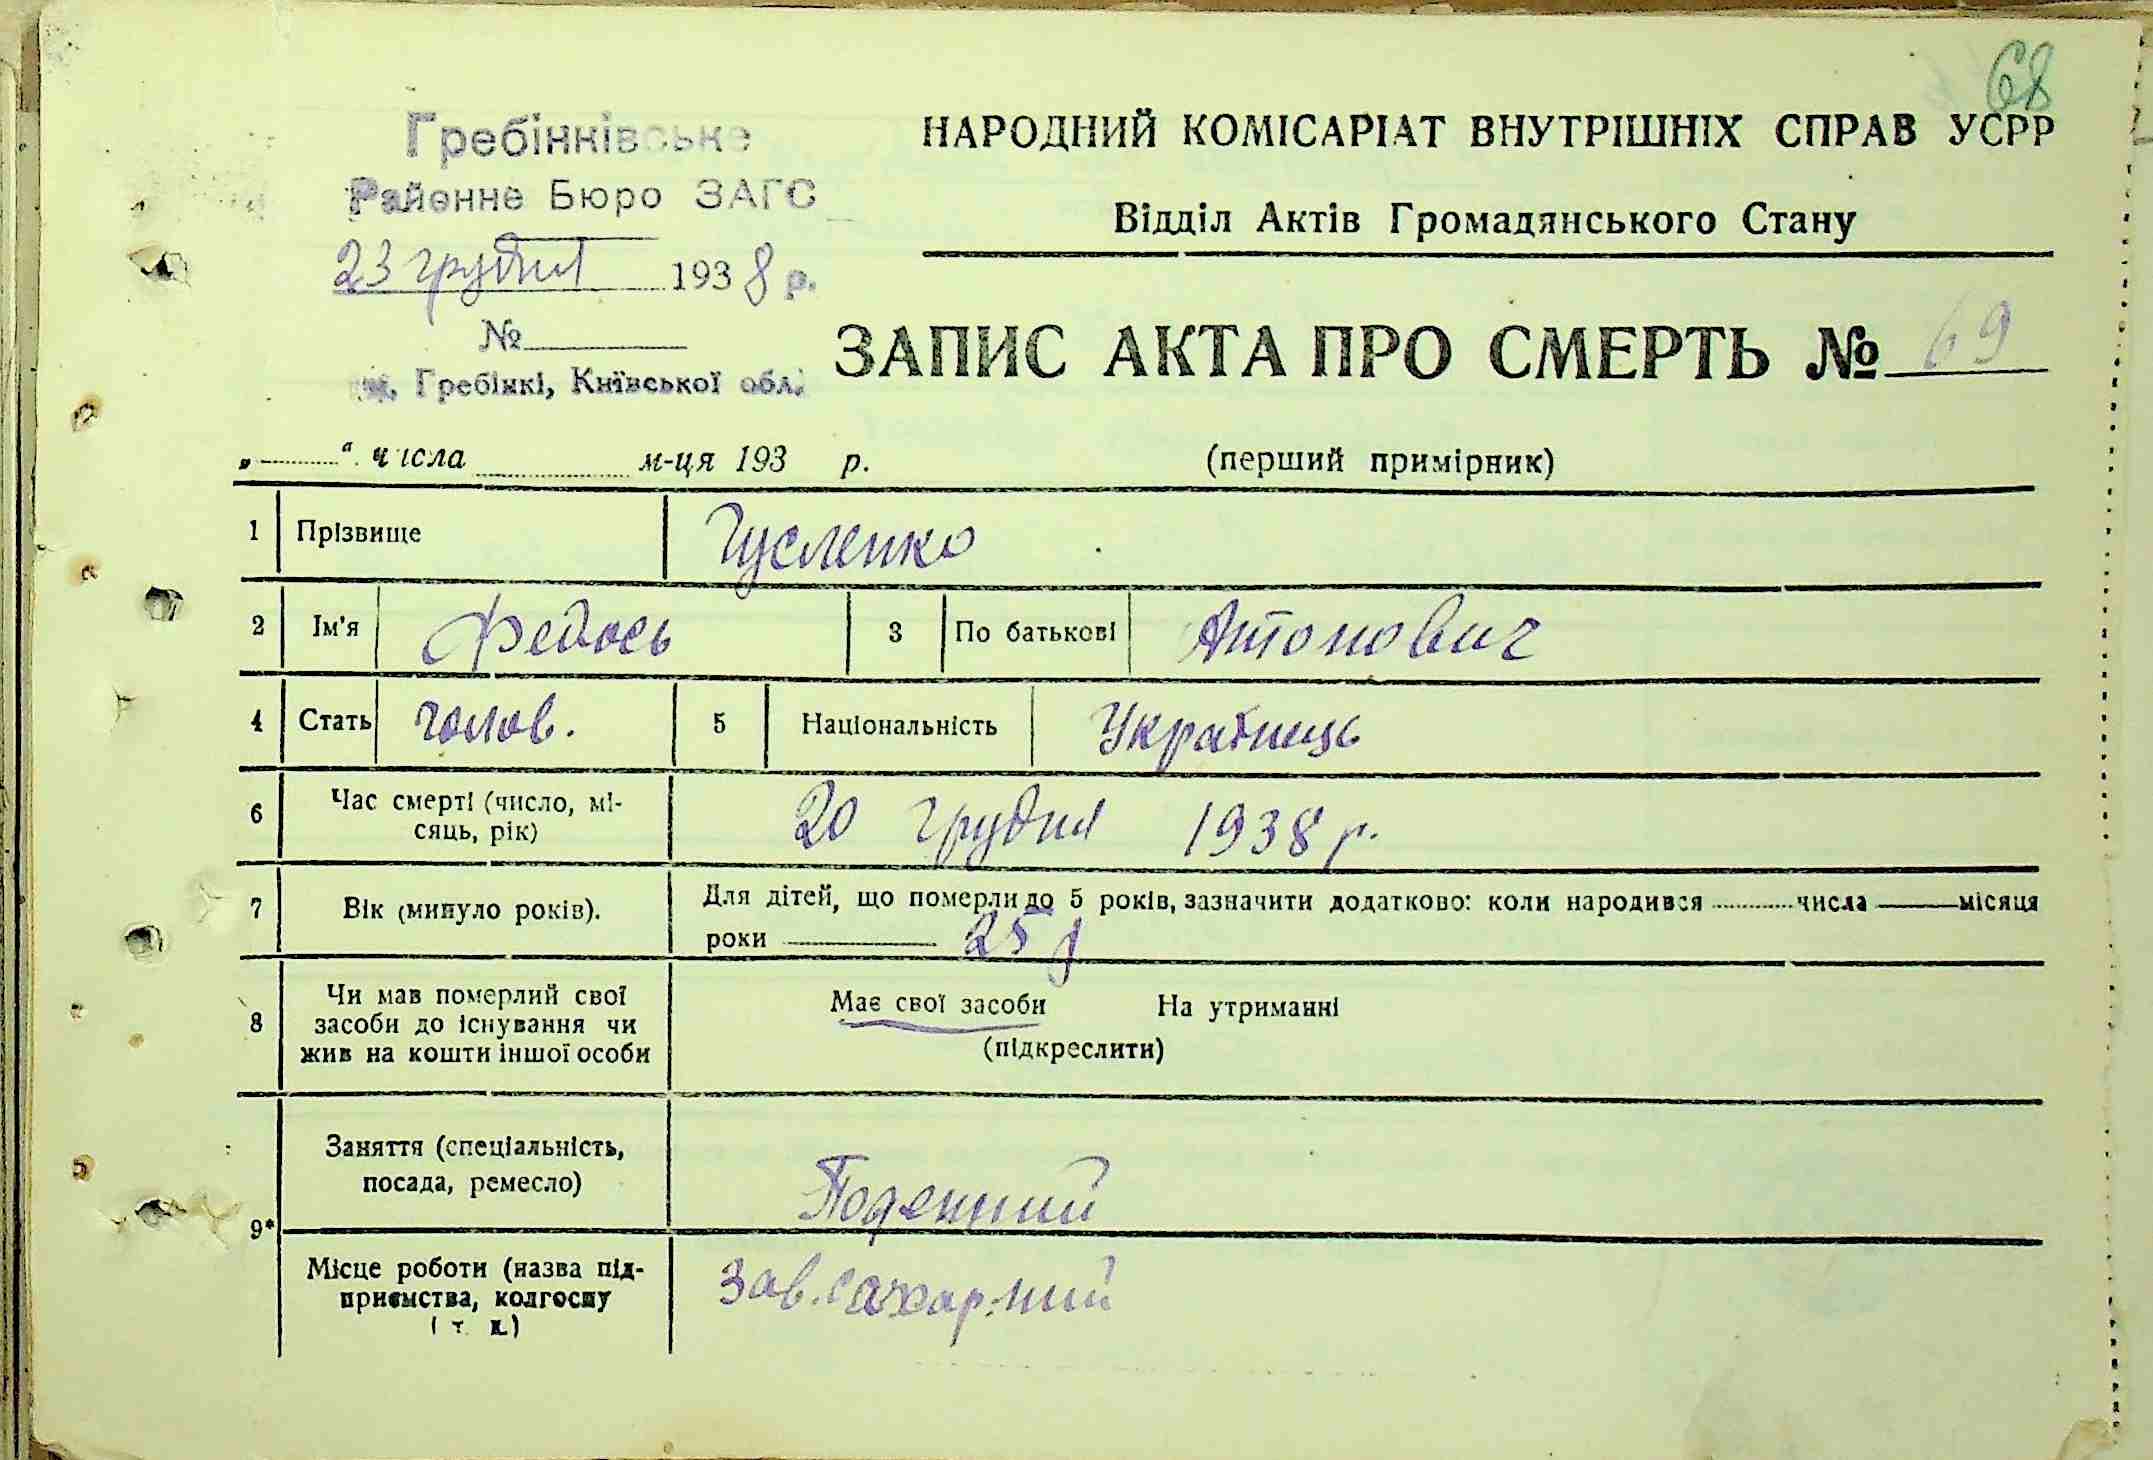 68
Гребінківське
Районне Бюро ЗАГС
23 грудня 1938 р.
№
м. Гребінкі, Київської обл.
НАРОДНИЙ КОМІСАРІАТ ВНУТРІШНІХ СПРАВ УСРР
Відділ Актів Громадянського Стану
ЗАПИС АКТА ПРО СМЕРТЬ № 69
„ “ числа м-ця 193 р.
(перший примірник)
1 Прізвище Гусленко
2 Ім'я Федось 3 По батькові Антонович
4 Стать чолов. 5 Національність Українець
6 Час смерті (число, мі-
сяць, рік) 20 грудня 1938 р.
7 Вік (минуло років). Для дітей, що померли до 5 років, зазначити додатково: коли народився числа місяця
роки 25 р
8 Чи мав померлий свої
засоби до існування чи
жив на кошти іншої особи
Має свої засоби На утриманні
(підкреслити)
9* Заняття (спеціальність,
посада, ремесло) Поденний
Місце роботи (назва під-
приємства, колгоспу
і т. п.) Зав. сахарний